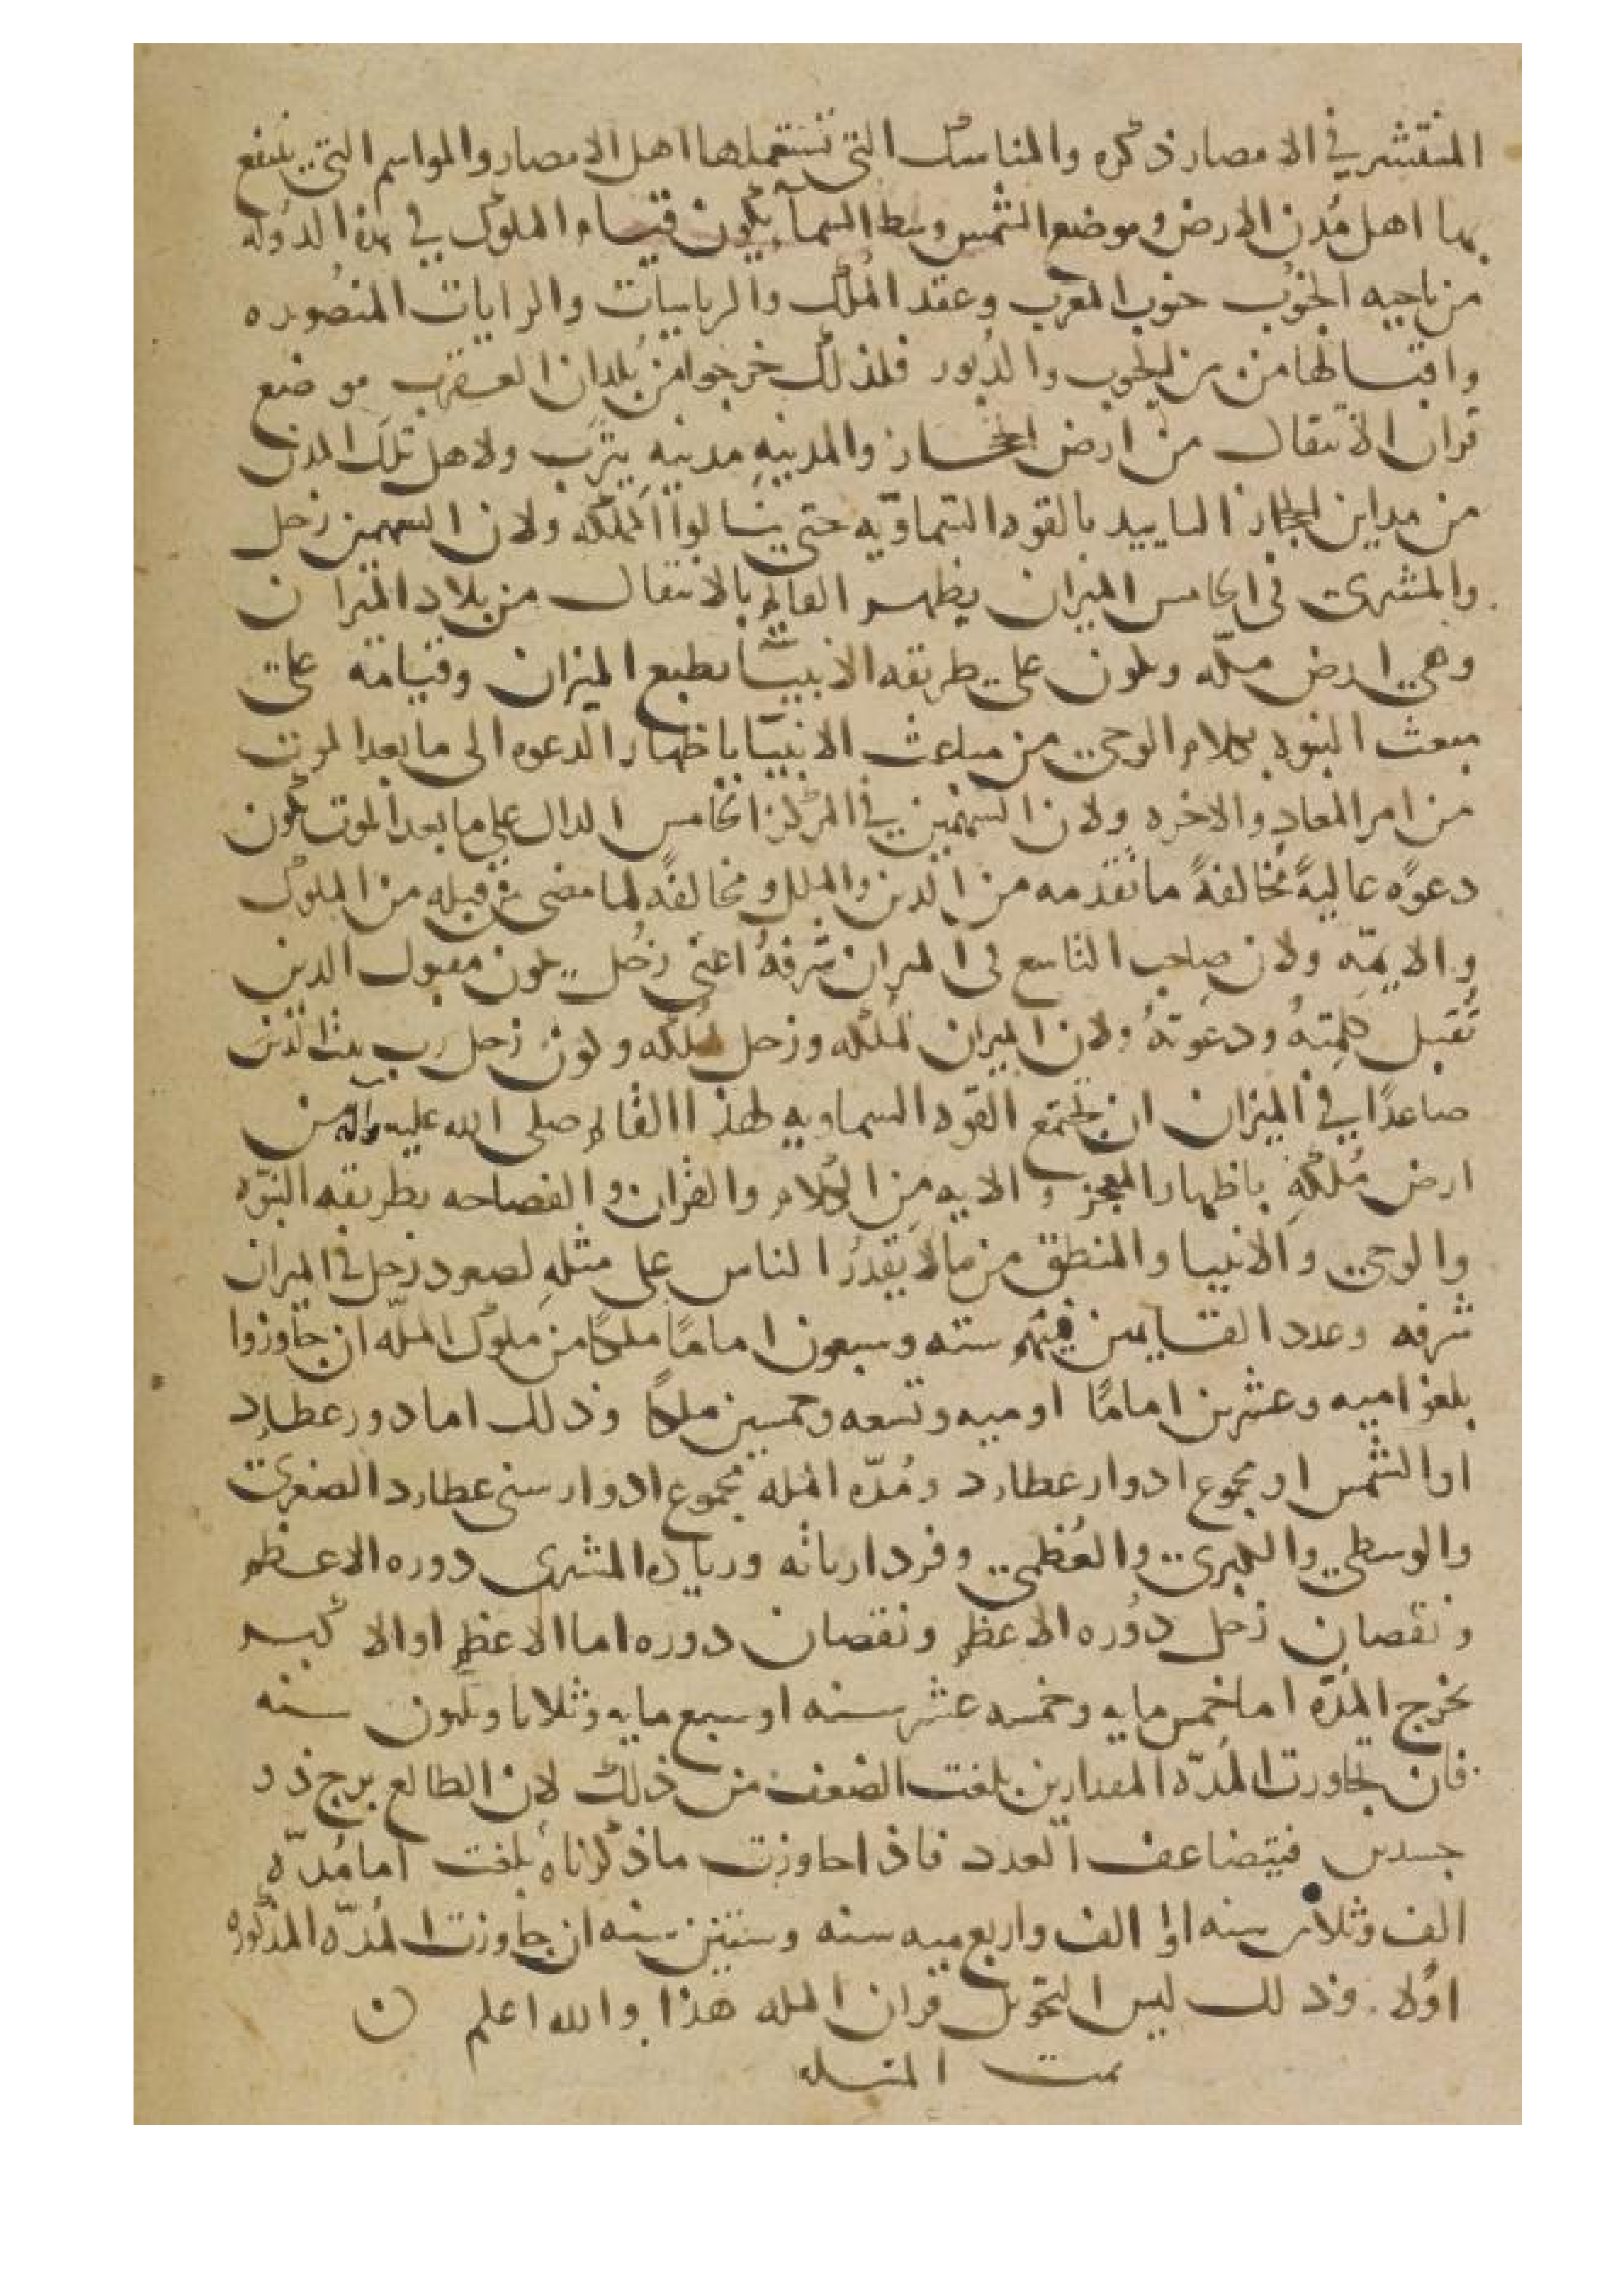 المنتشر في الامصار ذكره والمناسك التي تستعملها اهل الامصار والمواسم التي ينتفع
بها اهل مُدن الارض وموضع الشمس وسط السمآ يكون قيام الملوك في هذه الدَوله
من ناحيه الجنُوب جنوب المغرب وعقد المُلك والرياسات والرايات المنصُوره
من الجنوب والدَبور فلذلك خرجوا من بُلدان العقرب موضع
قران الانتقال من ارض الحجاز والمدينه مدينه يثرَب ولاهل تلك المدن
من مداين الحجاز التاييد بالقوه السماوّيه حتى ينَالوا المملكه ولان السهمين زحل
والمشتري في الخامس الميزان يظهر القايم بالانتقال من بلاد الميزان
وهي ارض مكّه ويكون على طريقه الانبيآ بطبع الميزان وقيامَه على
مبعث النبوه بكلام الوحي من مباعث الانبيآ باظهار الدعوه الى ما بعد الموت
من امر المعاد والاخره ولان السهمين في المركز الخامس الدال على ما بعد الموت يكون
دعوًه عاليةً مخالفةً ما تقدمه من الدين والملل ومخالفةً لما مضى من قبله من الملوك
والايمّه ولان صاحب التاسع في الميزان شرفهُ اعني زحُل يكون مقبول الدين
تُقبل كلمتهُ ودعوتهُ ولان الميزان لمكه وزحل لمكه وكون زحل رب بيت الدين
صاعدًا في الميزان ان تجتمع القوه السماويه لهذا القايم صلى الله عليه وآله من
ارض مُلكهِ باظهار المعجز والايه مِن الكلام والقرآن والفصاحه بطريقه النبوّه
والوحي والانبيا والمنطق من ما لا يَقدرُ الناس على مثلهِ لصعود زحل في الميزان
شرفه وعدد القايمين فيهم سته وسبعون امامًا ملكًا من ملوك الملّه ان جاوزوا
بلغوا ميه وعشرين امامًا او ميه وتسعه وخمسين ملكًا وذلك اما دور عطارد
او الشمس او مجموع ادوار عطارد ومُدّه المله مجموع ادوار سنى عطارد الصغرى
والوسطى والكبرى والعُظمى وفرداراته وزياده المشترى دوره الاعظم
ونقصان زحل دوُره الاعظم ونقصان دوره اما الاعظم او الاكبر
يخرج المدّه اما خمس مايه وخمسه عشر سنه او سبع مايه وثلاثا وثلثون سنه
فان تجاورت المُدّه المقدارين بلغت الضعف من ذلك لان الطالع برج ذو
جسدين فيتضاعف العدد فاذا جاوزت ما ذكرناهُ بلغت اما مُدّه
الف وثلاثين سنه او الف واربع ميه سنه وستين سنه ان جاوزت المُدّه المذكوره
اوًلا وذلك ليس التحويل قران المله هذا والله اعلم ن
تمت المسله